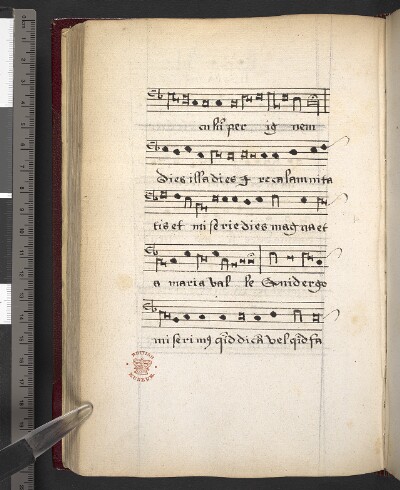 culū per ig nem
dies illa dies ire calamita
tis et mi se rie dies mag na et
a maria val de Quid ergo
miserimꝰ qͥd dicā vel qͥd fa
BRITISH MUSEUM